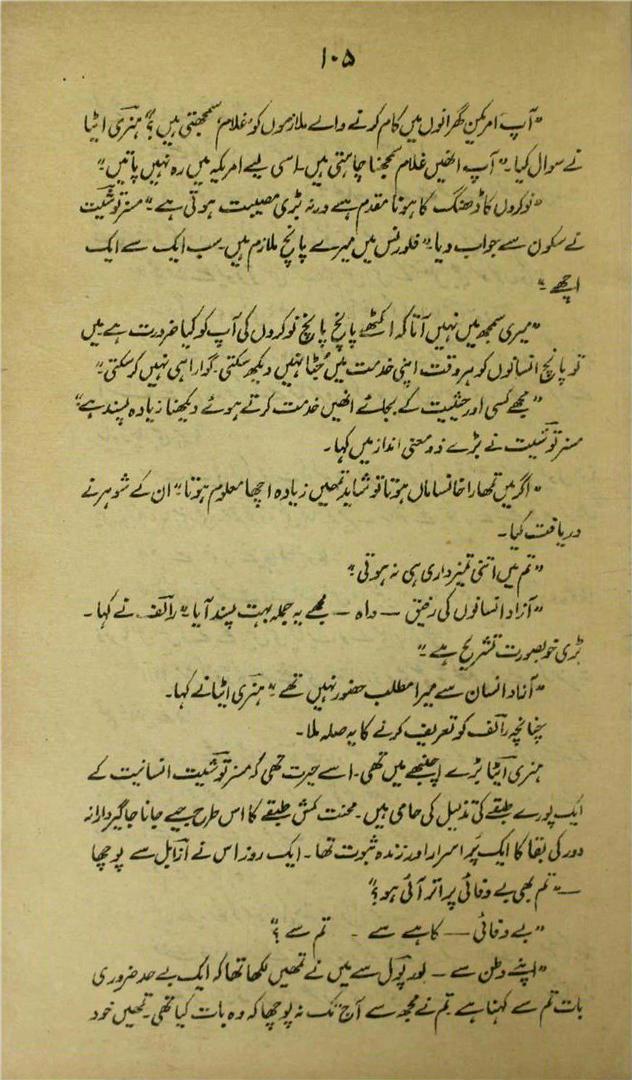 ۱۰۵
”آپ امریکین گھرانوں میں کام کرنے والے ملازموں کو ’غلام‘ سمجھتی ہیں؟“ ہنری ایٹا
نے سوال کیا۔ ”آپ انھیں غلام سمجھنا چاہتی ہیں۔ اسی لیے امریکہ میں رہ نہیں پاتیں۔“
”نوکروں کا ڈھنگ کا ہونا مقدم ہے ورنہ بڑی مصیبت ہوتی ہے۔“ مسز توشیٹ
نے سکون سے جواب دیا۔ ”فلورنس میں میرے پانچ ملازم ہیں۔ سب ایک سے ایک
اچھے۔“
”میری سمجھ میں نہیں آتا کہ اکٹھے پانچ پانچ نوکروں کی آپ کو کیا ضرورت ہے۔ میں
تو پانچ انسانوں کو ہر وقت اپنی خدمت میں جُٹا نہیں دیکھ سکتی۔ گوارا ہی نہیں کر سکتی۔“
”مجھے کسی اور حیثیت کے بجائے انھیں خدمت کرتے ہوئے دیکھنا زیادہ پسند ہے۔“
مسز توشیٹ نے بڑے ذو معنی انداز میں کہا۔
”اگر میں تمھارا خانساماں ہوتا تو شاید تمھیں زیادہ اچھا معلوم ہوتا۔“ ان کے شوہر نے
دریافت کیا۔
”تم میں اتنی تمیزداری ہی نہ ہوتی۔“
”آزاد انسانوں کی رفیق — واہ — مجھے یہ جملہ بہت پسند آیا۔“ رالف نے کہا۔
بڑی خوبصورت تشریح ہے۔“
”آزاد انسان سے میرا مطلب حضور نہیں تھے۔“ ہنری ایٹا نے کہا۔
چنانچہ رالف کو تعریف کرنے کا یہ صلہ ملا۔
ہنری ایٹا بڑے اچنبھے میں تھی۔ اسے حیرت تھی کہ مسز توشیٹ انسانیت کے
ایک پورے طبقے کی تذلیل کی حامی ہیں۔ محنت کش طبقے کا اس طرح جیے جانا جاگیردارانہ
دور کی بقا کا ایک پُر اسرار اور زندہ ثبوت تھا۔ ایک روز اس نے ازابل سے پوچھا
— ”تم بھی بے وفائی پر اتر آئی ہو؟“
”بے وفائی — کاہے سے ۔ تم سے؟“
”اپنے وطن سے — لورپول سے میں نے تمھیں لکھا تھا کہ ایک بے حد ضروری
بات تم سے کہنا ہے۔ تم نے مجھ سے آج تک نہ پوچھا کہ وہ بات کیا تھی۔ تمھیں خود